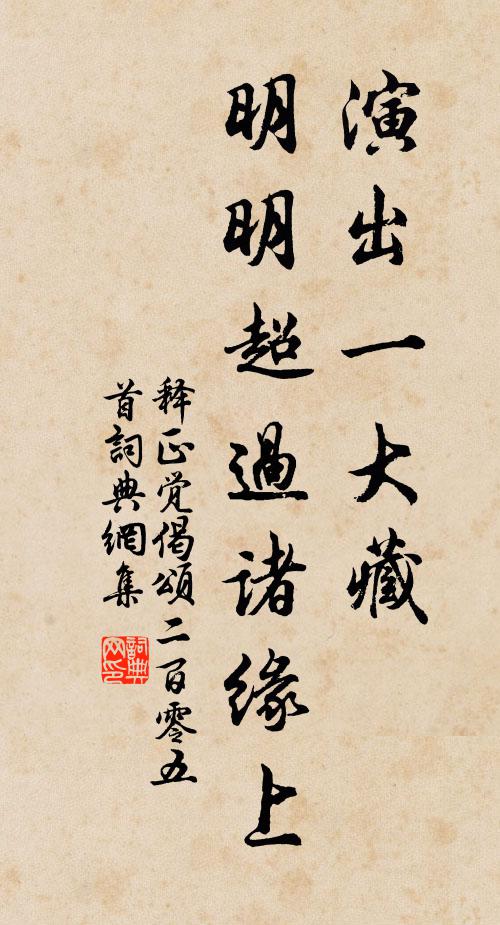 演出一大藏
明明超過諸緣上
释正觉偈頌二百零五
首詞典網集
詞典
网印